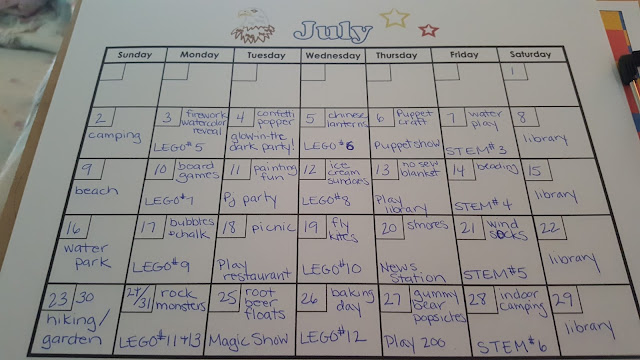 July
Sunday Monday Tuesday Wednesday Thursday Friday Saturday
1
2
camping
3 firework
watercolor
reveal
LEGO #5
4 confetti
popper
glow-in-the
dark party!
5 chinese
lanterns
LEGO #6
6 Puppet
craft
Puppet show
7 water
play
STEM #3
8
library
9
beach
10 board
games
LEGO #7
11 painting
fun
Pj party
12 ice
cream
sundaes
LEGO #8
13 no sew
blanket
Play
library
14 beading
STEM #4
15
library
16
water
park
17 bubbles
+chalk
LEGO #9
18 picnic
Play
restaurant
19 fly
kites
LEGO #10
20 smores
News
Station
21 wind
socks
STEM #5
22
library
23 30
hiking/
garden
24/31 rock
monsters
LEGO #11+13
25 root
beer
floats
Magic Show
26 baking
day
LEGO #12
27 gummy
bear
popsicles
Play zoo
28 indoor
camping
STEM #6
29
library